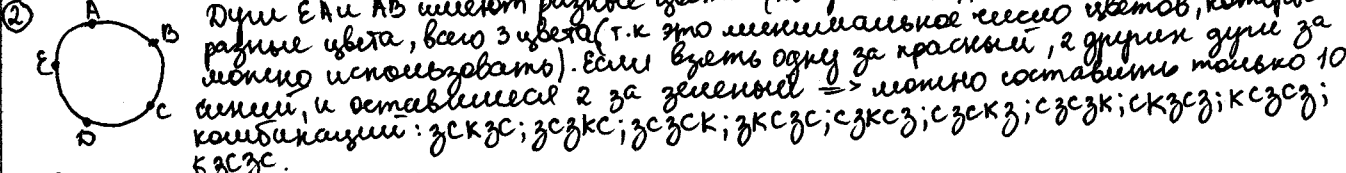 ② A B C D E Дуги ЕА и АВ имеют разные
разные цвета, всего 3 цвета (т.к это минимальное число цветов,
можно использовать). Если взять одну за красный, 2 других дуги за
синий, и оставшиеся 2 за зеленый => можно составить только 10
комбинаций: зскзс; зсзкс; зсзск; зксзс; сзксз; сзскз; сзсзк; скзсз; ксзсз;
кзсзс.